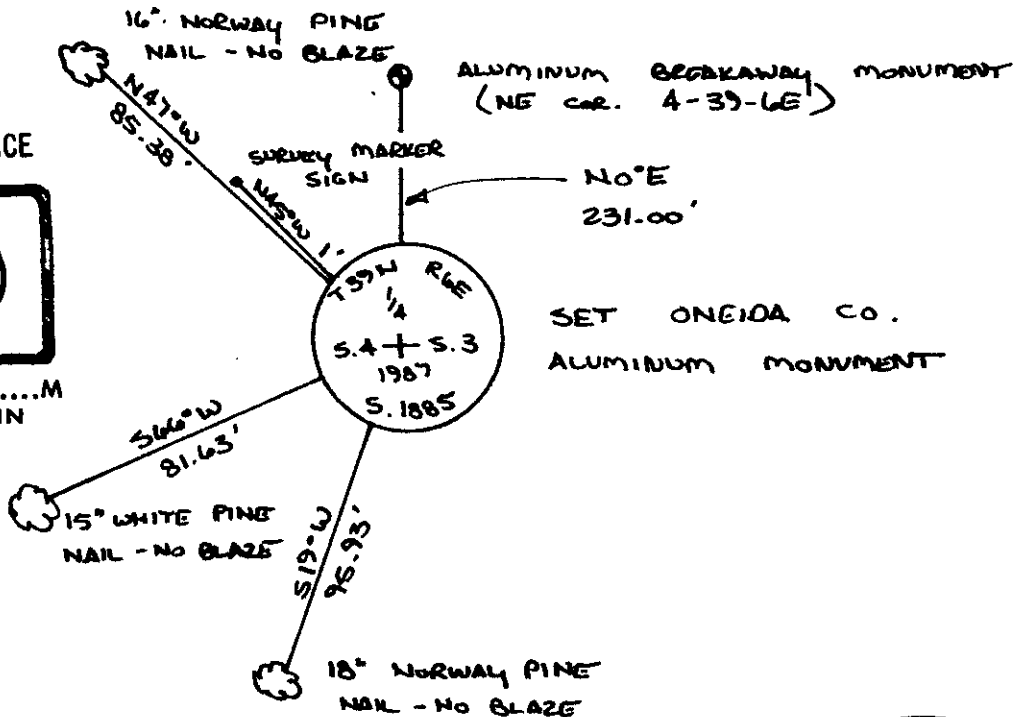 16". NORWAY PINE
NAIL - NO BLAZE
ALUMINUM BREAKAWAY MONUMENT
(NE COR. 4-39-6E)
N47°W
85.38'
SURVEY MARKER
SIGN
N45°W 1'
N0°E
231.00'
CE
T39N R6E
1/4
S.4 + S.3
1987
S.1885
SET ONEIDA CO.
ALUMINUM MONUMENT
.....M
IN
S66°W
81.63'
15" WHITE PINE
NAIL - NO BLAZE
S19°W
95.93'
18" NORWAY PINE
NAIL - NO BLAZE